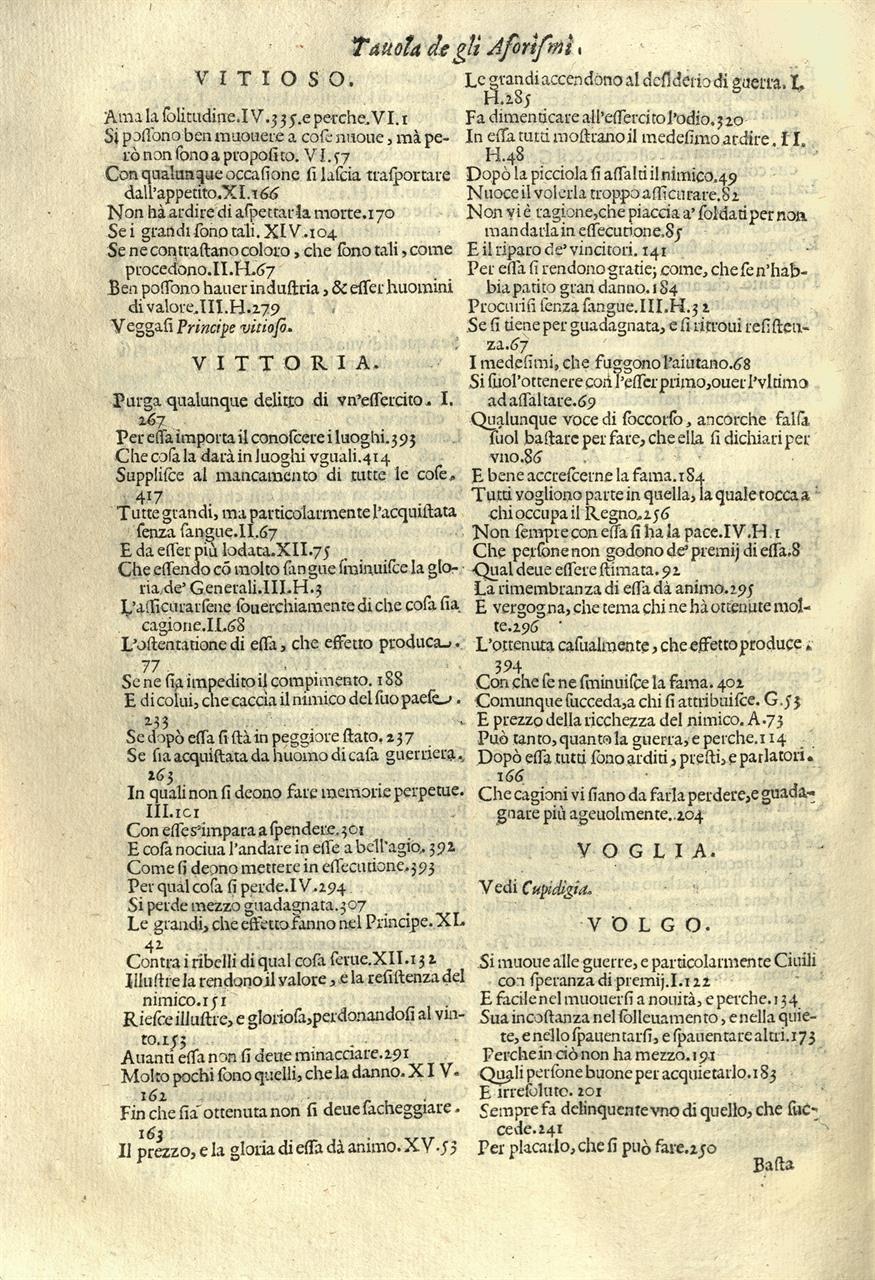 Tauola de gli Aforiſmi.
VITIOSO.
Ama la ſolitudine.IV.335.e perche.VI.1
Si poſſono ben muouere a coſe nuoue, mà pe-
rò non ſono a propoſito. VI.57
Con qualunque occaſione ſi laſcia traſportare
dall'appetito.XI.166
Non hà ardire di aſpettar la morte.170
Se i grandi ſono tali. XIV.104
Se ne contraſtano coloro, che ſono tali, come
procedono.II.H.67
Ben poſſono hauer induſtria, & eſſer huomini
di valore.III.H.279
Veggaſi Principe vitioſo.
VITTORIA.
Purga qualunque delitto di vn'eſſercito. I.
267
Per eſſa importa il conoſcere i luoghi.393
Che coſa la darà in luoghi vguali.414
Suppliſce al mancamento di tutte le coſe.
417
Tutte grandi, ma particolarmente l'acquiſtata
ſenza ſangue.II.67
E da eſſer più lodata.XII.75
Che eſſendo cõ molto ſangue ſminuiſce la glo-
ria de' Generali.III.H.3
L'aſſicurarſene ſouerchiamente di che coſa ſia
cagione.II.68
L'oſtentatione di eſſa, che effetto produca.
77
Se ne ſia impedito il compimento. 188
E di colui, che caccia il nimico del ſuo paeſe.
233
Se dopò eſſa ſi ſtà in peggiore ſtato.237
Se ſia acquiſtata da huomo di caſa guerriera.
263
In quali non ſi deono fare memorie perpetue.
III.101
Con eſſe s'impara a ſpendere.301
E coſa nociua l'andare in eſſe a bell'agio.392
Come ſi deono mettere in eſſecutione.393
Per qual coſa ſi perde.IV.294
Si perde mezzo guadagnata.307
Le grandi, che effetto fanno nel Principe. XI.
42
Contra i ribelli di qual coſa ſerue.XII.132
Illuſtre la rendono il valore, e la reſiſtenza del
nimico.151
Rieſce illuſtre, e glorioſa, perdonandoſi al vin-
to.153
Auanti eſſa non ſi deue minacciare.291
Molto pochi ſono quelli, che la danno. XIV.
162
Fin che ſia ottenuta non ſi deue ſacheggiare.
163
Il prezzo, e la gloria di eſſa dà animo.XV.53
Le grandi accendono al deſiderio di guerra. I.
H.285
Fa dimenticare all'eſſercito l'odio.320
In eſſa tutti moſtrano il medeſimo ardire. II.
H.48
Dopò la picciola ſi aſſalti il nimico.49
Nuoce il volerla troppo aſſicurare.82
Non vi è ragione, che piaccia a' ſoldati per non
mandarla in eſſecutione.85
E il riparo de' vincitori. 141
Per eſſa ſi rendono gratie; come, che ſe n'hab-
bia patito gran danno.184
Procuriſi ſenza ſangue.III.H.32
Se ſi tiene per guadagnata, e ſi ritroui reſiſten-
za.67
I medeſimi, che fuggono l'aiutano.68
Si ſuol'ottenere con l'eſſer primo, ouer l'vltimo
ad aſſaltare.69
Qualunque voce di ſoccorſo, ancorche falſa
ſuol baſtare per fare, che ella ſi dichiari per
vno.86
E bene accreſcerne la fama.184
Tutti vogliono parte in quella, la quale tocca a
chi occupa il Regno.256
Non ſempre con eſſa ſi ha la pace.IV.H.1
Che perſone non godono de' premij di eſſa.8
Qual deue eſſere ſtimata.92
La rimembranza di eſſa dà animo.295
E vergogna, che tema chi ne hà ottenute mol-
te.296
L'ottenuta caſualmente, che effetto produce.
394
Con che ſe ne ſminuiſce la fama. 402
Comunque ſucceda, a chi ſi attribuiſce. G.53
E prezzo della ricchezza del nimico. A.73
Può tanto, quanto la guerra, e perche.114
Dopò eſſa tutti ſono arditi, preſti, e parlatori.
166
Che cagioni vi ſiano da farla perdere, e guada-
gnare più ageuolmente.204
VOGLIA.
Vedi Cupidigia.
VOLGO.
Si muoue alle guerre, e particolarmente Ciuili
con ſperanza di premij.I.122
E facile nel muouerſi a nouità, e perche.134
Sua incoſtanza nel ſolleuamento, e nella quie-
te, e nello ſpauentarſi, e ſpauentare altri.173
Perche in ciò non ha mezzo.191
Quali perſone buone per acquietarlo.183
E irreſoluto. 201
Sempre fa delinquente vno di quello, che ſuc-
cede.241
Per placarlo, che ſi può fare.250
Baſta